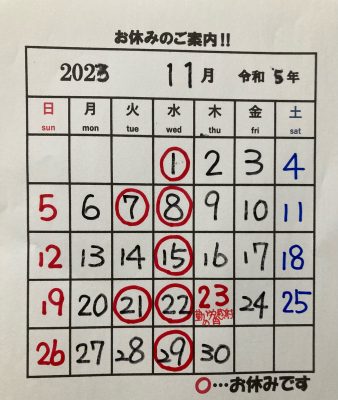 お休みのご案内!!
2023 11月 令和5年
日 月 火 水 木 金 土
sun mon tue wed thu fri sat
1 2 3 4
5 6 7 8 9 10 11
12 13 14 15 16 17 18
19 20 21 22 23 24 25
勤労感謝
の日
26 27 28 29 30
○…お休みです